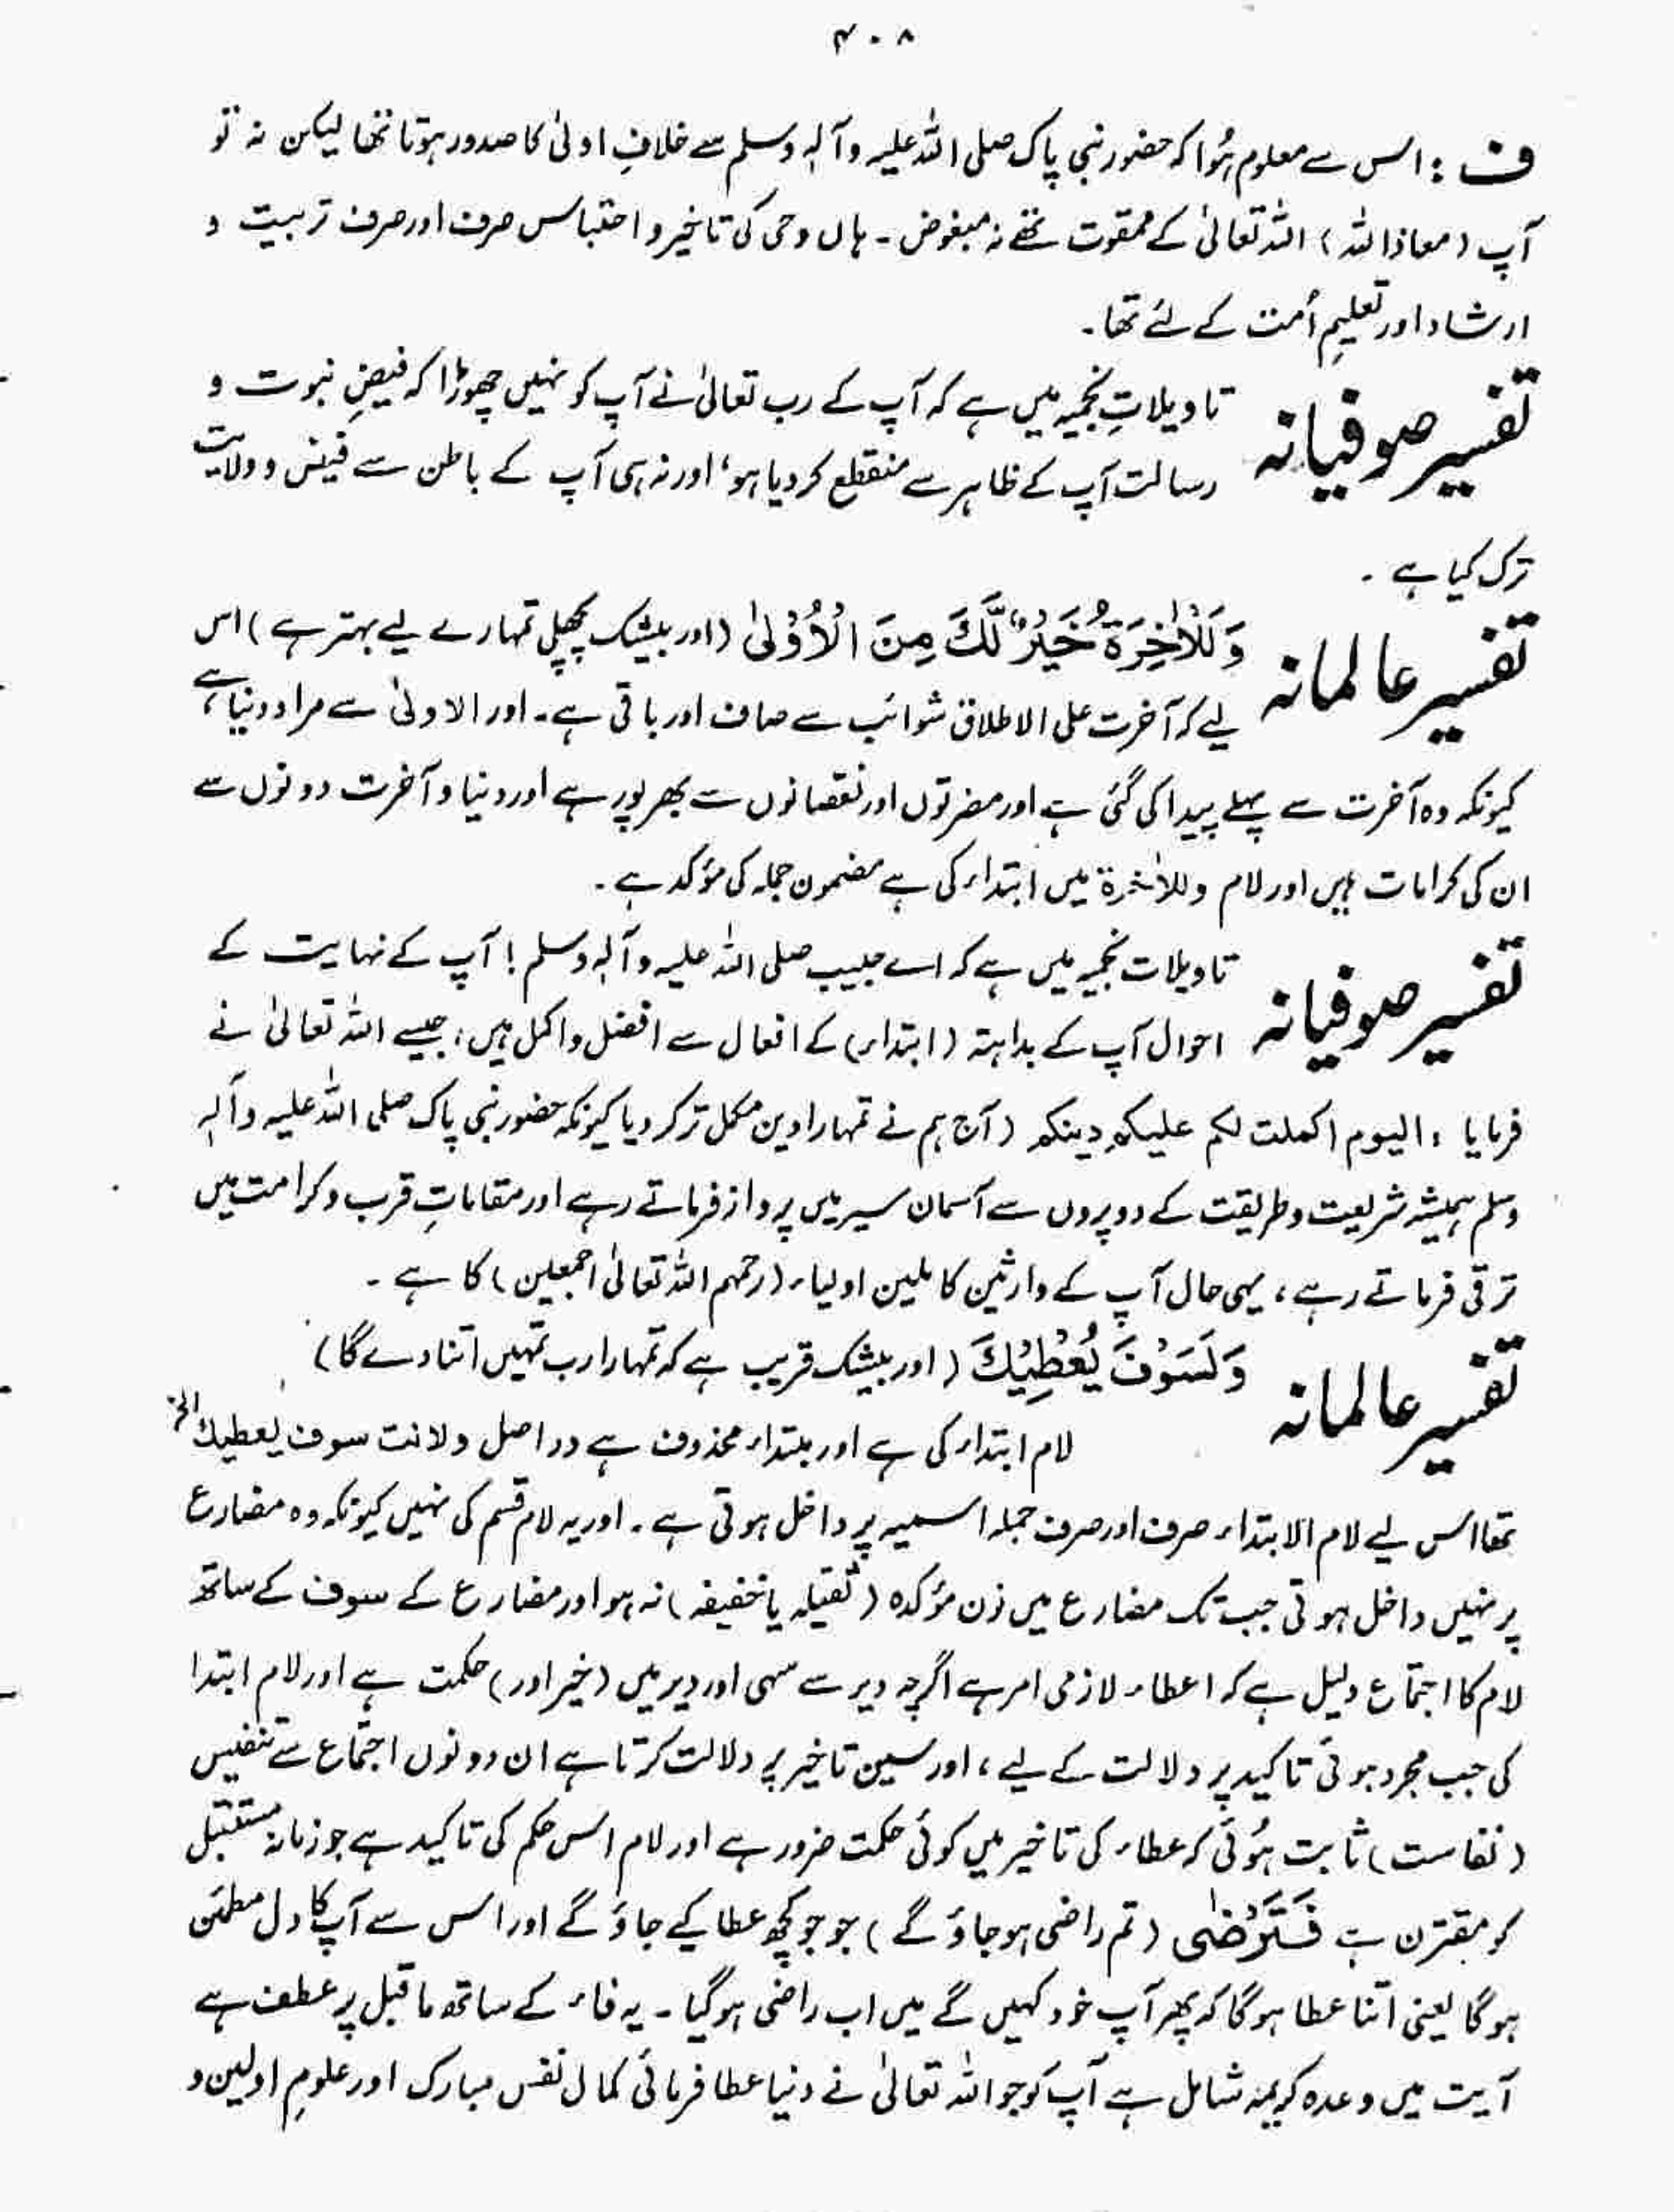 ۴۰۸
ف : اس سے معلوم ہُوا کہ حضور نبی پاک صلی اللہ علیہ وآلہٖ وسلم سے خلافِ اولیٰ کا صدور ہوتا تھا لیکن نہ تو
آپ (معاذ اللہ) اللہ تعالیٰ کے ممقوت تھے نہ مبغوض ۔ ہاں وحی کی تاخیر و احتباس صرف اور صرف تربیت و
ارشاد اور تعلیمِ اُمت کے لئے تھا ۔
تفسیر صوفیانہ
تاویلاتِ نجمیہ میں ہے کہ آپ کے رب تعالیٰ نے آپ کو نہیں چھوڑا کہ فیضِ نبوت و
رسالت آپ کے ظاہر سے منقطع کر دیا ہو، اور نہ ہی آپ کے باطن سے فیض و ولایت
ترک کیا ہے ۔
تفسیر عالمانہ
وَلَلْاٰخِرَةُ خَيْرٌ لَّكَ مِنَ الْاُوْلٰى (اور بیشک پچھلی تمہارے لیے بہتر ہے) اس
لیے کہ آخرت علی الاطلاق شوائب سے صاف اور باقی ہے۔ اور الاولیٰ سے مراد دنیا ہے،
کیونکہ وہ آخرت سے پہلے پیدا کی گئی ہے اور مضرتوں اور نقصانوں سے بھرپور ہے اور دنیا و آخرت دونوں سے
ان کی کرامات ہیں اور لام وللاٰخرة میں ابتداء کی ہے مضمون جملہ کی مؤکد ہے ۔
تفسیر صوفیانہ
تاویلات نجمیہ میں ہے کہ اے حبیب صلی اللہ علیہ وآلہٖ وسلم ! آپ کے نہایت کے
احوال آپ کے بداہتہ (ابتداء) کے افعال سے افضل و اکمل ہیں، جیسے اللہ تعالیٰ نے
فرمایا : الیوم اکملت لکم علیکم دینکم (آج ہم نے تمہارا دین مکمل تر کر دیا کیونکہ حضور نبی پاک صلی اللہ علیہ وآلہٖ
وسلم ہمیشہ شریعت و طریقت کے دو پروں سے آسمان سیر میں پرواز فرماتے رہے اور مقاماتِ قرب و کرامت میں
ترقی فرماتے رہے، یہی حال آپ کے وارثین کاملین اولیاء (رحمہم اللہ تعالیٰ اجمعین) کا ہے ۔
تفسیر عالمانہ
وَلَسَوْفَ يُعْطِيْكَ (اور بیشک قریب ہے کہ تمہارا رب تمہیں اتنا دے گا)
لام ابتداء کی ہے اور مبتداء محذوف ہے در اصل ولانت سوف یعطیک الخ
تھا اس لیے لام الابتداء صرف اور صرف جملہ اسمیہ پر داخل ہوتی ہے ۔ اور یہ لام قسم کی نہیں کیونکہ وہ مضارع
پر نہیں داخل ہوتی جب تک مضارع میں نون مؤکدہ (ثقیلہ یا خفیفہ) نہ ہو اور مضارع کے سوف کے ساتھ
لام کا اجتماع دلیل ہے کہ اعطاء لازمی امر ہے اگرچہ دیر سے سہی اور دیر میں (خیر اور) حکمت ہے اور لام ابتدا
کی جب مجرد ہوئی تاکید پر دلالت کے لیے، اور سین تاخیر پر دلالت کرتا ہے ان دونوں اجتماع سے تنفیس
(نفاست) ثابت ہُوئی کہ عطاء کی تاخیر میں کوئی حکمت ضرور ہے اور لام اس حکم کی تاکید ہے جو زمانہ مستقبل
کو مقترن ہے فَتَرْضٰى (تم راضی ہو جاؤ گے) جو جو کچھ عطا کیے جاؤ گے اور اس سے آپ کا دل مطمئن
ہوگا یعنی اتنا عطا ہوگا کہ پھر آپ خود کہیں گے میں اب راضی ہوگیا ۔ یہ فاء کے ساتھ ما قبل پر عطف ہے
آیت میں وعدہ کریمہ شامل ہے آپ کو جو اللہ تعالیٰ نے دنیا عطا فرمائی کمال نفس مبارک اور علومِ اولین و